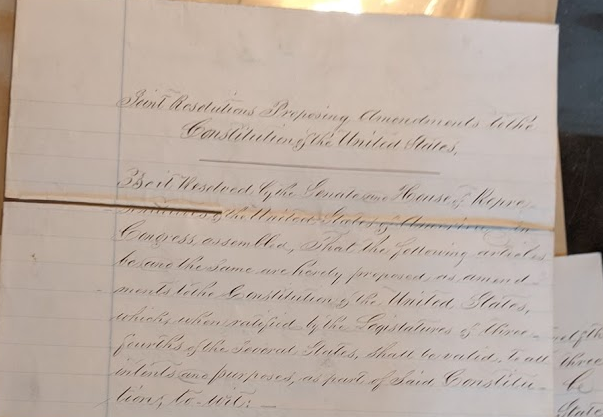 Joint Resolutions Proposing Amendments to the
Constitution of the United States.
Be it Resolved by the Senate and House of Repre-
sentatives of the United States of America in
Congress assembled, That the following articles
be and the same are hereby proposed as amend-
ments to the Constitution of the United States,
which, when ratified by the Legislatures of three-
fourths of the several States, shall be valid, to all
intents and purposes, as part of said Constitu-
tion, to wit: —
of th
three
be
State